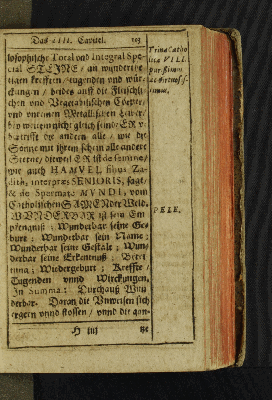 Das IIII. Capitel. 103
losophisch: Total vnd Integral Spe-
cial STEINE / an wunderbe-
tigen kresften / tugenden vnd wür-
ckungen / beides auff die Fleischli-
chen vnd Vegetabilischen Cörper /
vnd vnreinen Metallischen
nicht gleich sein: ER v-
bertrifft die andern alle / wie die
Sonne mit jhrem schein alle andere
Sterne / dieweil ER ist die somme /
wie auch HAMVEL filius Za-
dith, interpres SENIORIS, saget /
& de Spermate MVNDI, vom
Catholischen SAMEN der Welt.
WVNDERBAR ist sein Em-
pfengnuß ; Wunderbar seine Ge-
burt ; Wunderbar sein Name ;
Wunderbar seine Gestalt ; Wun-
derbar seine Erkentnuß ; Berei-
tung ; Wiedergeburt ; Kreffte /
Tugenden vnnd Wirckungen.
In Summa : Durchauß Wun-
derbar. Daran die Vnweisen sich
ergern vnnd stossen / vnnd die gan-
H iiij tze
Trina Catho
lica VIII.
parissima
ac firmissi-
PELE.